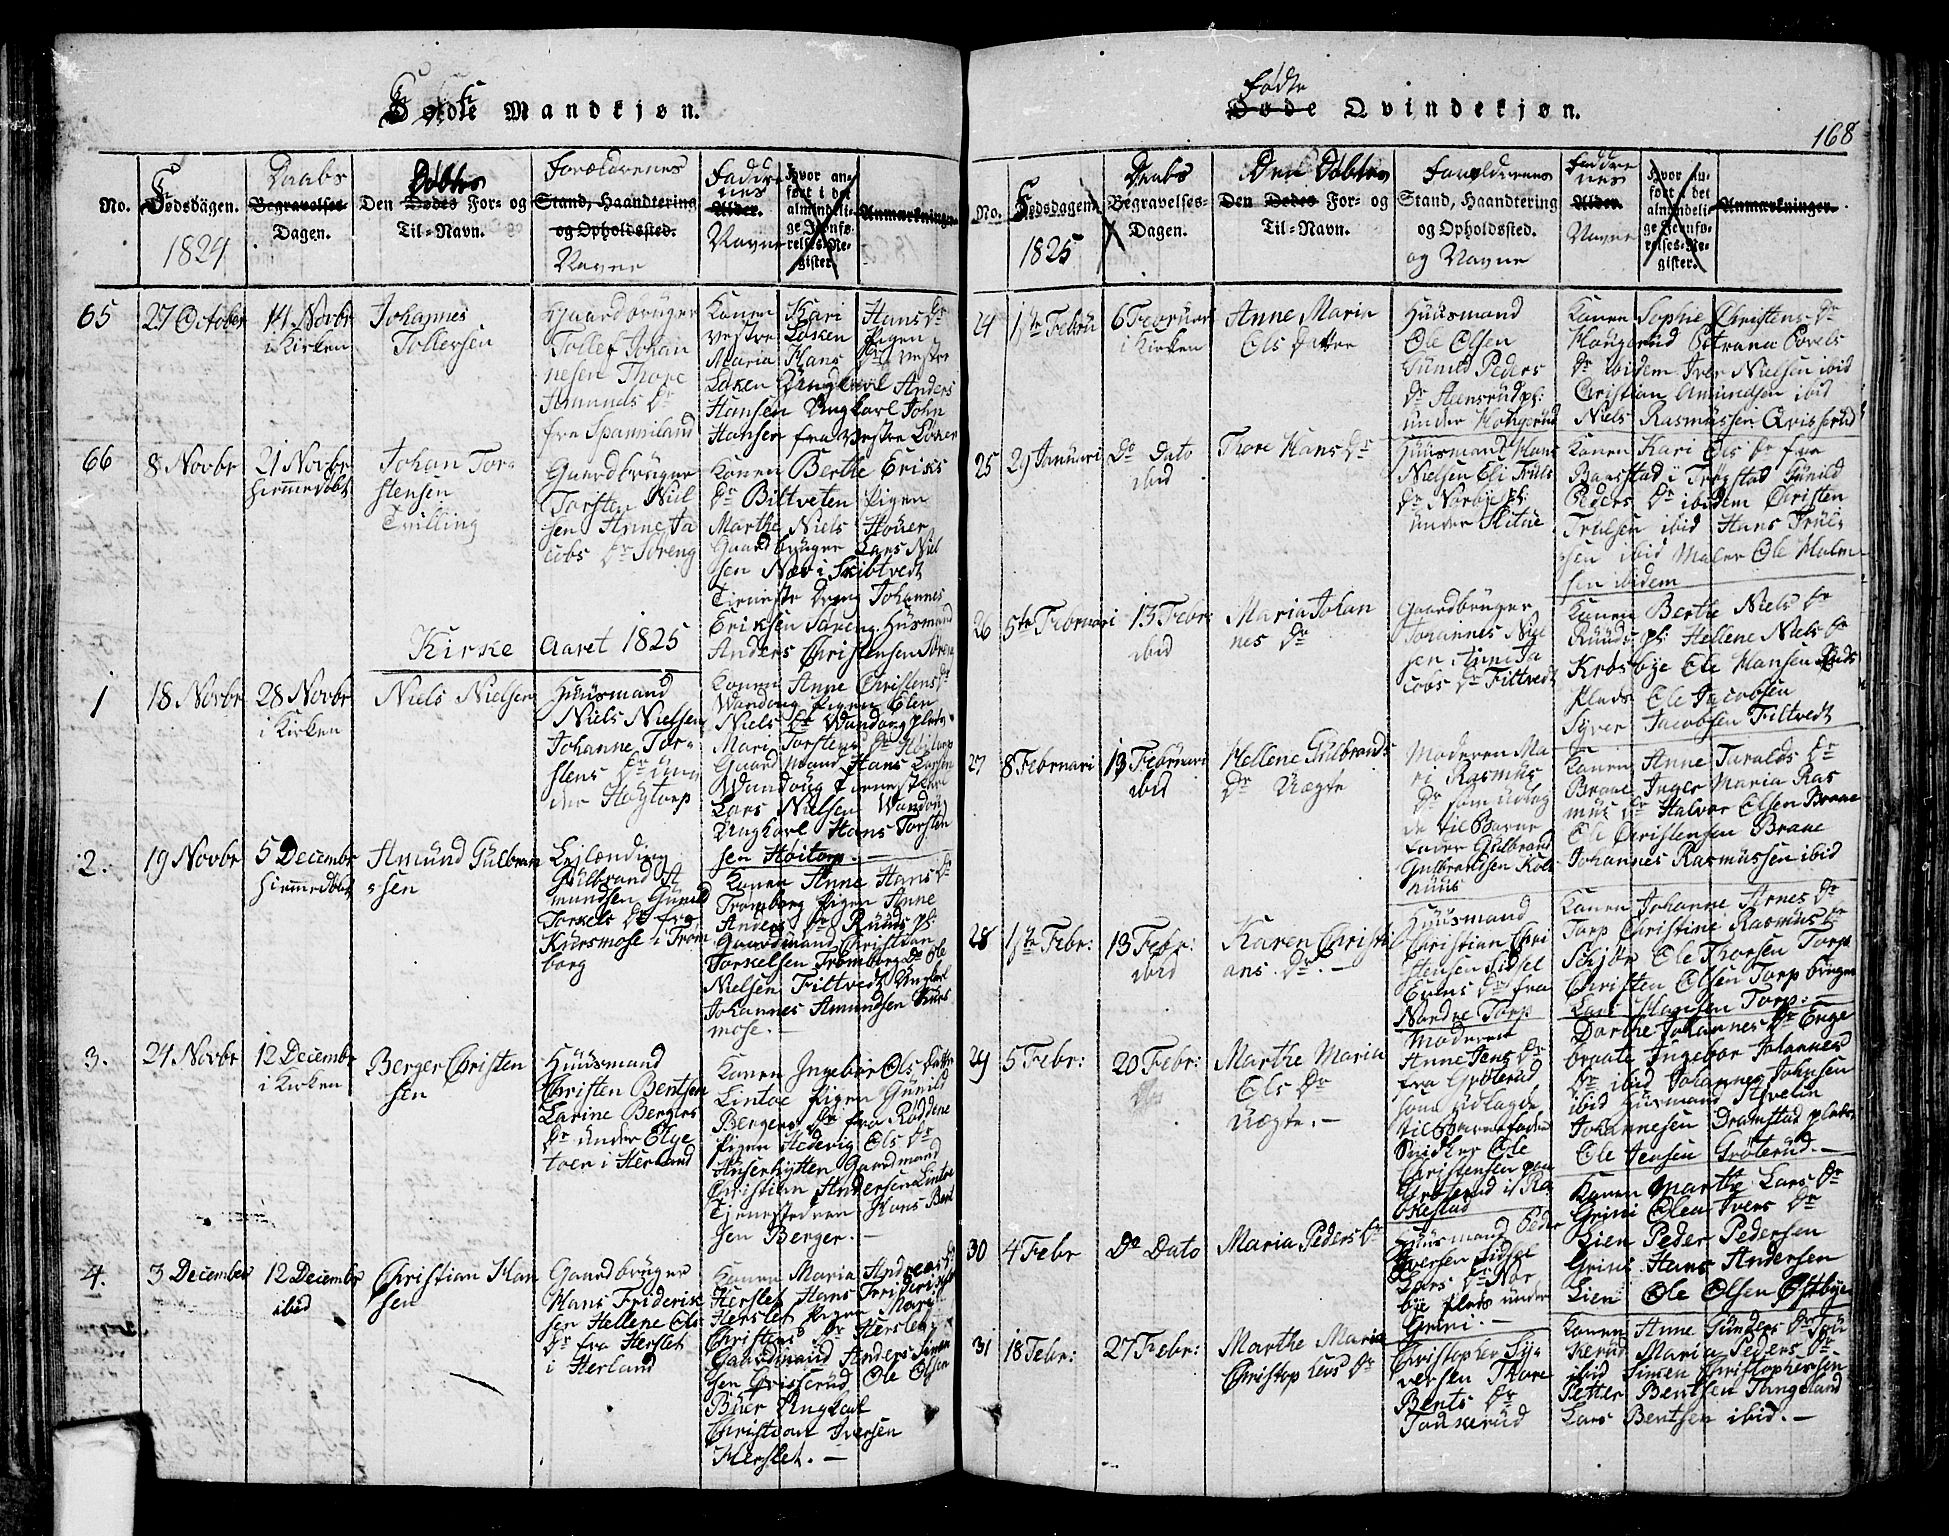 Fødte Mandkjøn.
No.
Fødsdagen.
1824
Daabs
Begravelses-
Dagen.
Døbtes
Den Dødes For- og
Til-Navn.
Forældrenes
Stand, Haandtering
og Opholdssted.
Navne
Faddre
nes
Alder.
Navne
Hvor an-
ført i det
almindeli-
ge Jevnfø-
relses-Re-
gister.
Anmærkninger
65
27 October
14 Novbr
i Kirken
Johannes
Tollersen
Gaardbruger
Tollef Johan
nesen Thore
Amunds Dr
fra Spanniland
Konen Kari Hans Dr
vestre Løken Pigen
Maria Hans Dr vestre
Løken Ungkarl Anders
Hansen Ungkarl John
Hansen fra vestre Løken
66
8 Novbr
21 Novbr
Hiemmedøbt
Johan Tor-
stensen
Tvilling
Gaardbruger
Torsten Niel
sen Anne Ja
cobs Dr Søreng
Konen Berthe Eriks
Dr Biltveten Pigen
Marthe Niels Houer
Gaardbruger Lars Niel
sen Næs i Skibtvedt
Tieneste Dreng Johannes
Eriksen Søreng Huusmand
Anders Christensen Søreng
Kirke Aaret 1825
1
18 Novbr
28 Novbr
i Kirken
Niels Nielsen
Huusmand
Niels Nielsen
Johanne Tor-
stens Dr un
der Høytorp
Konen Anne Christens Dr
Wandoug Pigen Elen
Niels Dr Wandoug plads
Mari Torstens Dr Høitorp
Gaardmand Hans Larsen
Wandoug Tieneste Karl
Lars Nielsen Wandoug
Ungkarl Hans Torsten
sen Høitorp. —
2.
19 Novbr
5 Decembr
Hiemmedøbt
Amund Gulbran
ssen
Leilænding
Gulbrand A
mundsen Gunild
Torkels Dr fra
Kiærsmose i Trøm
borg
Konen Anne Hans Dr
Trømborg Pigen Anne
Anders Dr Ruuds pl:
Gaardmand Christian
Torkelsen Trømborg Do Ole
Nielsen Filtvedt Ungkarl
Johannes Amundsen Kiærs
mose. —
3.
24 Novbr
12 Decembr
i Kirken
Berger Christen
sen
Huusmand
Christen Bentsen
Karine Bergers
Dr under Elge
toen i Herland
Konen Ingebor Ols Datter
Lintoe Pigen Gunild
Bergers Dr fra Røddene
Pigen Hedevig Ols Dr
Huserhytten Gaardmand
Christian Andersen Lintoe
Tjenestedreng Hans Bent
sen Berger. —
4.
3 December
12 Decembr
ibid
Christian Han
sen
Gaardbruger
Hans Friderik
sen Hellene Ols
Dr fra Herslet
i Herland
Konen Maria Andreas Dr
Herslet Hans Frideriksen
Herslet Pigen Mari
Christens Dr Herslet
Gaardmand Anders Simen
sen Grisserud Ole Olsen
Buer Ungkarl
Christian Iversen
Herslet. —
Fødte
Døde Qvindekjøn.
168
No.
Fødsdagen.
1825
Daabs
Begravelses-
Dagen.
Den Døbtes
Den Dødes For- og
Til-Navn.
Forældrenes
Stand, Haandtering
og Opholdssted.
og Navne
Faddre
nes
Alder.
Navne
Hvor an-
ført i det
almindeli-
ge Jevnfø-
relses-Re-
gister.
Anmærkninger.
24
1ste Febru
6 Februari
i Kirken
Anne Maria
Ols Datter
Huusmand
Ole Olsen
Gunild Peders
Dr Hansrud pl:
under Kongerud
Konen Sophie Christens Dr
Kongerud Petrana Povels
Dr ibidem Iver Nielsen ibid
Christian Amundsen ibid
Niels Rasmussen Grisserud
25
29 Januari
Do Dato
ibid
Thore Hans Dr
Huusmand Hans
Nielsen Eli Truls
Dr Norbye pl:
under Skitne
Konen Kari Ols Dr fra
Baastad i Trøgstad Gunild
Peders Dr ibidem Christen
Trulsen ibid Hans Trul-
sen ibid Maler Ole Malm-
sen ibidem
26
5te Februari
13 Febr:
ibid
Maria Johan
nes Dr
Gaardbruger
Johannes Niel
sen Anne Ja
cobs Dr Filtvedt
Konen Berthe Niels Dr
Ruuds pl: Hellene Niels Dr
Krosbye Ole Hansen Ruds
plads Ole Jacobsen
Syver Jacobsen Filtvedt
27
8 Februari
13 Februari
ibid
Hellene Gulbrands
Dr Uægte
Moderen Ma
ri Rasmus
Dr som udlag
de til Barne
Fader Gulbrand
Gulbrandsen Kols
huus
Konen Anne Taralds Dr
Braae Inger Maria Ras
mus Dr Halvor Olsen Braae
Ole Christensen Braae
Johannes Rasmussen ibid
28
1ste Febr:
13 Febr:
ibid
Karen Christi
ans. Dr. —
Huusmand
Christian Chri
stensen Sidsel
Evens Dr fra
Nordre Torp
Konen Johanne Arnes Dr
Torp Christine Rasmus Dr
Schjør Ole Thorsen Torp
Christen Olsen Torp bruger
Lars Hansen Torp. —
29
5 Febr:
20 Febr:
Marthe Maria
Ols Dr
Uægte. —
Moderen
Anne Jens Dr
fra Grøterud
som udlagde
til Barnefader
Snidker Ole
Christensen paa
Grøterud i Ra
kkestad
Dorthe Johannes Dr Enge
braate Ingebor Johannes
Dr ibid Johannes Johnsen
ibid Huusmand Azvelin
Johannesen Dramstad plads
Ole Jensen Grøterud. —
30
4 Febr
Do Dato
Maria Peders Dr
Huusmand Peder
Iversen Sidsel
Lars Dr Nor
bye plads under
Grini. —
Konen Marthe Lars Dr
Grini Olea Ivers Dr
Lien Peder Pedersen
Grini Hans Andersen
Lien Ole Olsen Østbye
31
18 Febr:
27 Febr:
Marthe Maria
Christophers Dr
Christopher Sy-
versen Thore
Bents Dr
Touserud
Konen Anne Gunders Dr Tou
serud Maria Peders Dr
ibid Simen Christophersen
Petter Bentsen Tangeland
Lars Bentsen ibid. —